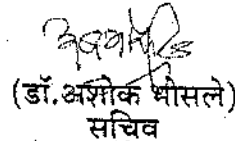 (डॉ.अशोक भोसले)
सचिव